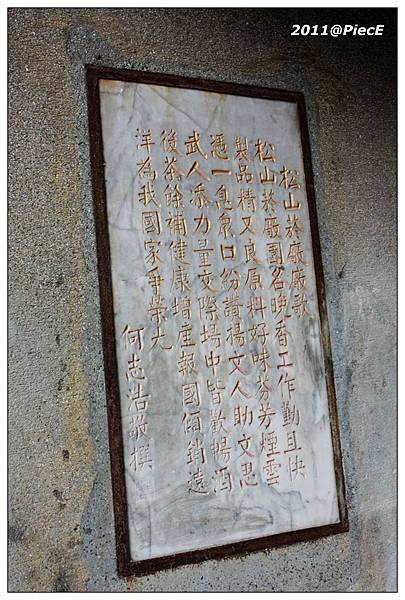 2011@PiecE
松山菸廠廠歌
松山菸廠園名晚香工作勤且快
製品精又良原料好味芬芳煙雲
憑一息眾口紛讚揚文人助文思
武人添力量交際場中皆歡暢酒
後茶餘補健康增產報國傾銷遠
洋為我國家爭榮光
何志浩敬撰